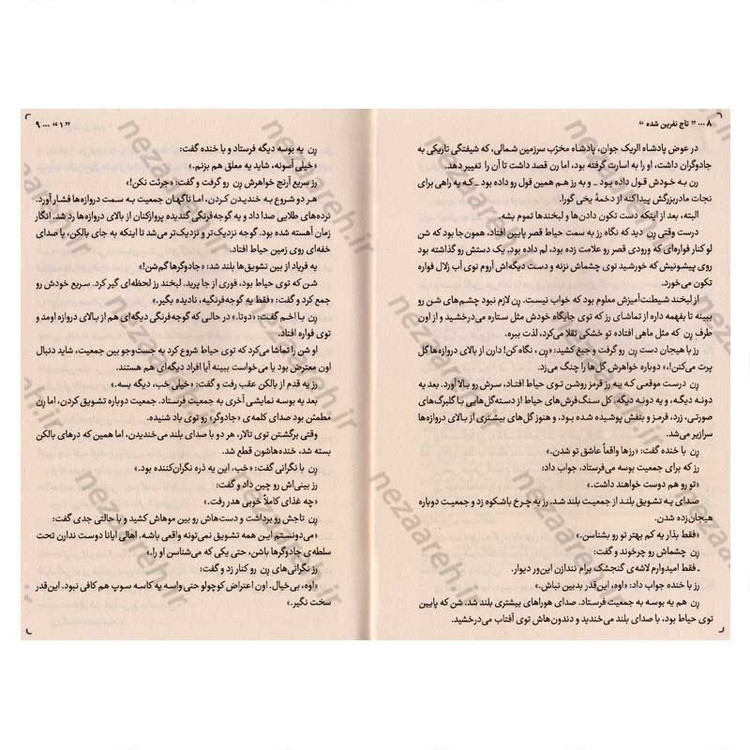 ۸ ... " تاج نفرین شده "
در عوض پادشاه الریک جوان، پادشاه مخرّب سرزمین شمالی، که شیفتگی تاریکی به
جادوگران داشت، او را به اسارت گرفته بود، اما رن قصد داشت تا آن را تغییر دهد.
رِن به خودش قول داده بود ـ و به رز هم همین قول رو داده بود ـ که یه راهی برای
نجات مادربزرگش پیدا کنه از دخمهٔ یخی گورا.
البته، بعد از اینکه دست تکون دادن‌ها و لبخندها تموم بشه.
درست وقتی رِن دید که نگاه رز به سمت حیاط قصر پایین افتاد، همون‌جا بود که شن
لو کنار فواره‌ای که ورودی قصر رو علامت زده بود، لم داده بود. یک دستش رو گذاشته بود
روی پیشونیش که خورشید توی چشماش نزنه و دست دیگه‌اش آروم توی آب زلال فواره
تکون می‌خورد.
از لبخند شیطنت‌آمیزش معلوم بود که خواب نیست. رِن لازم نبود چشم‌های شن رو
ببینه تا بفهمه داره از تماشای رز که توی جایگاه خودش مثل ستاره می‌درخشید و از اون
طرف رِن که مثل ماهی افتاده تو خشکی تقلا می‌کرد، لذت ببره.
رز با هیجان دست رِن رو گرفت و جیغ کشید: «رِن، نگاه کن! دارن از بالای دروازه‌ها گل
پرت می‌کنن!»، دوباره خواهرش گل‌ها را چنگ می‌زد.
رِن درست موقعی که یه رز قرمز روشن توی حیاط افتاد، سرش رو بالا آورد. بعد یه
دونه دیگه، و یه دونه دیگه. کل سنگ‌فرش‌های حیاط از دسته‌گل‌هایی با گلبرگ‌های
صورتی، زرد، قرمز و بنفش پوشیده شده بود، و هنوز گل‌های بیشتری از بالای دروازه‌ها
سرازیر می‌شد.
رِن با خنده گفت: «رزها واقعاً عاشق تو شدن.»
رز که برای جمعیت بوسه می‌فرستاد، جواب داد:
«تو رو هم دوست خواهند داشت.»
صدای یه تشویق بلند از جمعیت بلند شد. رز یه چرخ باشکوه زد و جمعیت دوباره
هیجان‌زده شدن.
«فقط بذار یه کم بهتر تو رو بشناسن.»
رِن چشماش رو چرخوند و گفت:
«فقط امیدوارم لاشه‌ی گنجشک برام نندازن این‌ور دیوار.
رز با خنده جواب داد: «اوه، این‌قدر بدبین نباش.»
رِن هم یه بوسه به جمعیت فرستاد. صدای هوراهای بیشتری بلند شد. شن که پایین
توی حیاط بود، با صدای بلند می‌خندید و دندون‌هاش توی آفتاب می‌درخشید.
"۱" ... ۹
رِن یه بوسه دیگه فرستاد و با خنده گفت:
«خیلی آسونه. شاید یه معلق هم بزنم.»
رز سریع آرنج خواهرش رِن رو گرفت و گفت: «جرئت نکن!»
هر دو شروع به خندیدن کردن، اما ناگهان جمعیت به سمت دروازه‌ها فشار آورد.
نرده‌های طلایی صدا داد و یه گوجه‌فرنگی گندیده پروازکنان از بالای دروازه‌ها رد شد. انگار
زمان آهسته شده بود. گوجه نزدیک‌تر و نزدیک‌تر می‌شد تا اینکه به جای بالکن، با صدای
خفه‌ای روی زمین حیاط افتاد.
یه فریاد از بین تشویق‌ها بلند شد: «جادوگرها گم شن!»
شن که توی حیاط بود، فوری از جا پرید. لبخند رز لحظه‌ای گیر کرد. سریع خودش رو
جمع کرد و گفت: «فقط یه گوجه‌فرنگیه، نادیده بگیر.»
رِن با اخم گفت: «دوتا.» در حالی که گوجه‌فرنگی دیگه‌ای هم از بالای دروازه اومد و
توی فواره افتاد.
او شن را تماشا می‌کرد که توی حیاط شروع کرد به جست‌وجو بین جمعیت، شاید دنبال
اون معترض بود یا می‌خواست ببینه آیا افراد دیگه‌ای هم هستند.
رز یه قدم از بالکن عقب رفت و گفت: «خیلی خب، دیگه بسه.»
بعد یه بوسه نمایشی آخری به جمعیت فرستاد. جمعیت دوباره تشویق کردن، اما رِن
مطمئن بود صدای کلمه‌ی «جادوگر» رو توی باد شنیده.
وقتی برگشتن توی تالار، هر دو با صدای بلند می‌خندیدن، اما همین که درهای بالکن
بسته شد، خنده‌هاشون قطع شد.
رِن با نگرانی گفت: «خب، این یه ذره نگران‌کننده بود.»
رز بینی‌اش رو چین داد و گفت:
«چه غذای کاملاً خوبی هدر رفت.»
رِن تاجش رو برداشت و دست‌هاش رو بین موهاش کشید و با حالتی جدی گفت:
«می‌دونستم این همه تشویق نمی‌تونه واقعی باشه. اهالی ایانا دوست ندارن تحت
سلطه‌ی جادوگرها باشن، حتی یکی که می‌شناسن او را.»
رز نگرانی‌های رِن رو کنار زد و گفت:
«اوه، بی‌خیال. اون اعتراض کوچولو حتی واسه یه کاسه سوپ هم کافی نبود. این‌قدر
سخت نگیر.»
nezaareh.ir